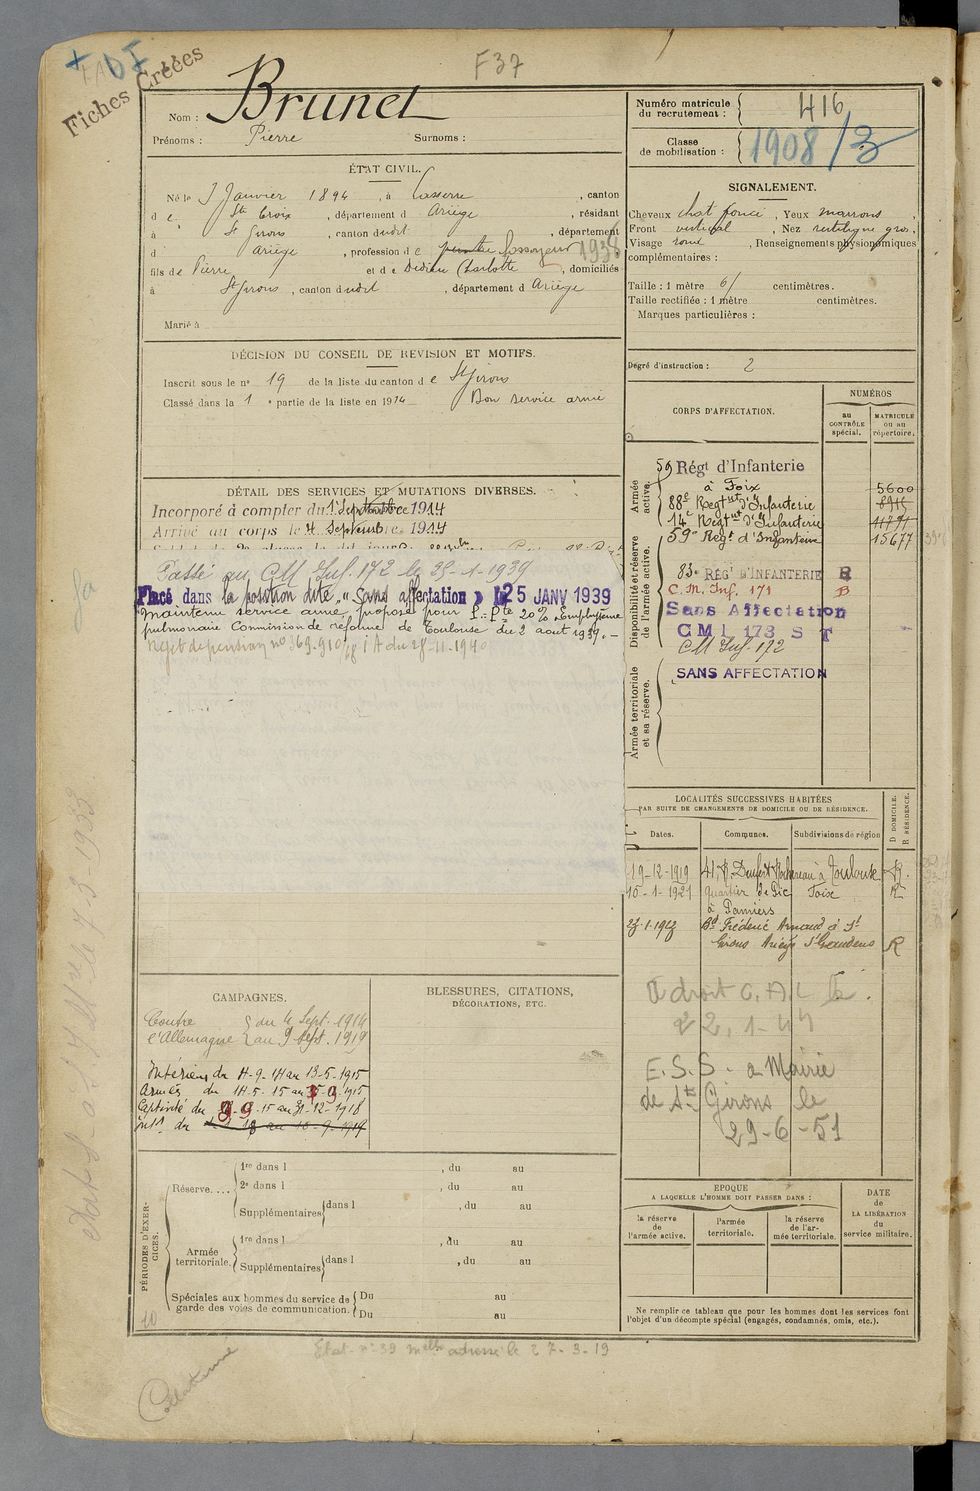 F37
Fiches Créées
Nom : Brunet
Prénoms : Pierre Surnoms :
Numéro matricule du recrutement : 416
Classe de mobilisation : 1908/3
ÉTAT CIVIL.
Né le 3 Janvier 1894, à Lasserre, canton
de Ste Croix, département d Ariège, résidant
à St Girons, canton dudit, département
d Ariège, profession de peintre fossoyeur 1938
fils de Pierre et de Dedieu Charlotte, domiciliés
à St Girons, canton dudit, département d Ariège
Marié à
SIGNALEMENT.
Cheveux chat foncé, Yeux marrons,
Front vertical, Nez rectiligne gros,
Visage rond, Renseignements physionomiques
complémentaires :
Taille : 1 mètre 61 centimètres.
Taille rectifiée : 1 mètre centimètres.
Marques particulières :
DÉCISION DU CONSEIL DE REVISION ET MOTIFS.
Inscrit sous le no 19 de la liste du canton de St Girons
Classé dans la 1e partie de la liste en 1914 Bon service armé
Degré d'instruction : 2
DÉTAIL DES SERVICES ET MUTATIONS DIVERSES.
Incorporé à compter du 1 Septembre 1914
Arrivé au corps le 4 Septembre 1914
Passé au CM Inf. 172 le 25-1-1939
Placé dans la position dite "Sans affectation" Le 25 JANV 1939
maintenu service armé, proposé pour P. Pte 20% Emphysème
pulmonaire Commission de réforme de Toulouse du 2 aout 1939.-
Rejet de pension no 369.910 du 28-11-1940
CORPS D'AFFECTATION.
NUMÉROS
au CONTRÔLE spécial.
MATRICULE ou au répertoire.
Armée active.
59 Régt d'Infanterie
à Foix 5600
88e Regt d'Infanterie 8915
14e Regt d'Infanterie
59e Regt d'Infanterie 15677
Disponibilité et réserve de l'armée active.
83e RÉGt D'INFANTERIE R
C. M. Inf. 171 B
Sans Affectation
C M I 173 S T
CM Inf. 172
Armée territoriale et sa réserve.
SANS AFFECTATION
LOCALITÉS SUCCESSIVES HABITÉES
PAR SUITE DE CHANGEMENTS DE DOMICILE OU DE RÉSIDENCE.
Dates. Communes. Subdivisions de région
D DOMICILE.
R RÉSIDENCE.
19-12-1919 41, R. Denfert Rochereau à Toulouse R
15-1-1921 quartier de Pic Foix R
à Pamiers
Bd Frédéric Arnaud à St
Girons Ariège St Gaudens R
droit C.A.L
22, 1-44
E.S.S. a Mairie
de St Girons le
29-6-51
CAMPAGNES.
Contre l'Allemagne du 4 Sept. 1914
au 9 Sept. 1919
Intérieur du 4-9-14 au 13-5-1915
Armées du 14.5.15 au 3-9-1915
Captivité du 3-9-15 au 31-12-1918
BLESSURES, CITATIONS,
DÉCORATIONS, ETC.
PÉRIODES D'EXERCICES.
Réserve....
1re dans l , du au
2e dans l , du au
Supplémentaires dans l , du au
Armée territoriale.
1re dans l , du au
Supplémentaires dans l , du au
Spéciales aux hommes du service de garde des voies de communication.
Du au
Du au
EPOQUE
A LAQUELLE L'HOMME DOIT PASSER DANS :
la réserve de l'armée active.
l'armée territoriale.
la réserve de l'armée territoriale.
DATE de LA LIBÉRATION du service militaire.
Ne remplir ce tableau que pour les hommes dont les services font
l'objet d'un décompte spécial (engagés, condamnés, omis, etc.).
10
Etat no 39 adressé le 27-3-19